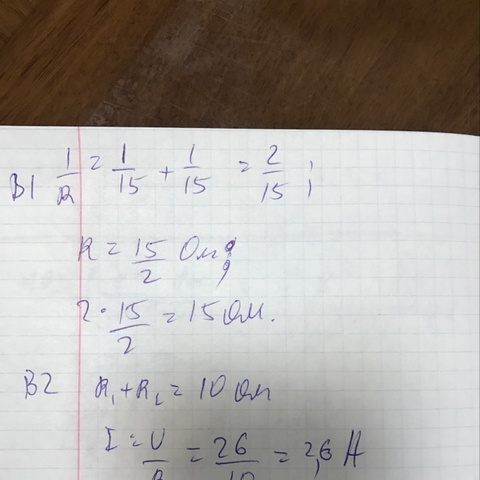 В1 1/R = 1/15 + 1/15 = 2/15 ;
R = 15/2 Ом;
2 · 15/2 = 15 Ом.
В2 R₁+R₂ = 10 Ом
I = U/R = 26/10 = 2,6 А